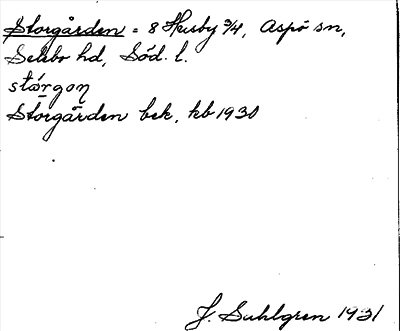 Storgården = 8 Husby 3/4, Aspö sn,
Selebo hd, Söd. l.
stórgoɳ
Storgården bek. kb 1930
J. Sahlgren 1931